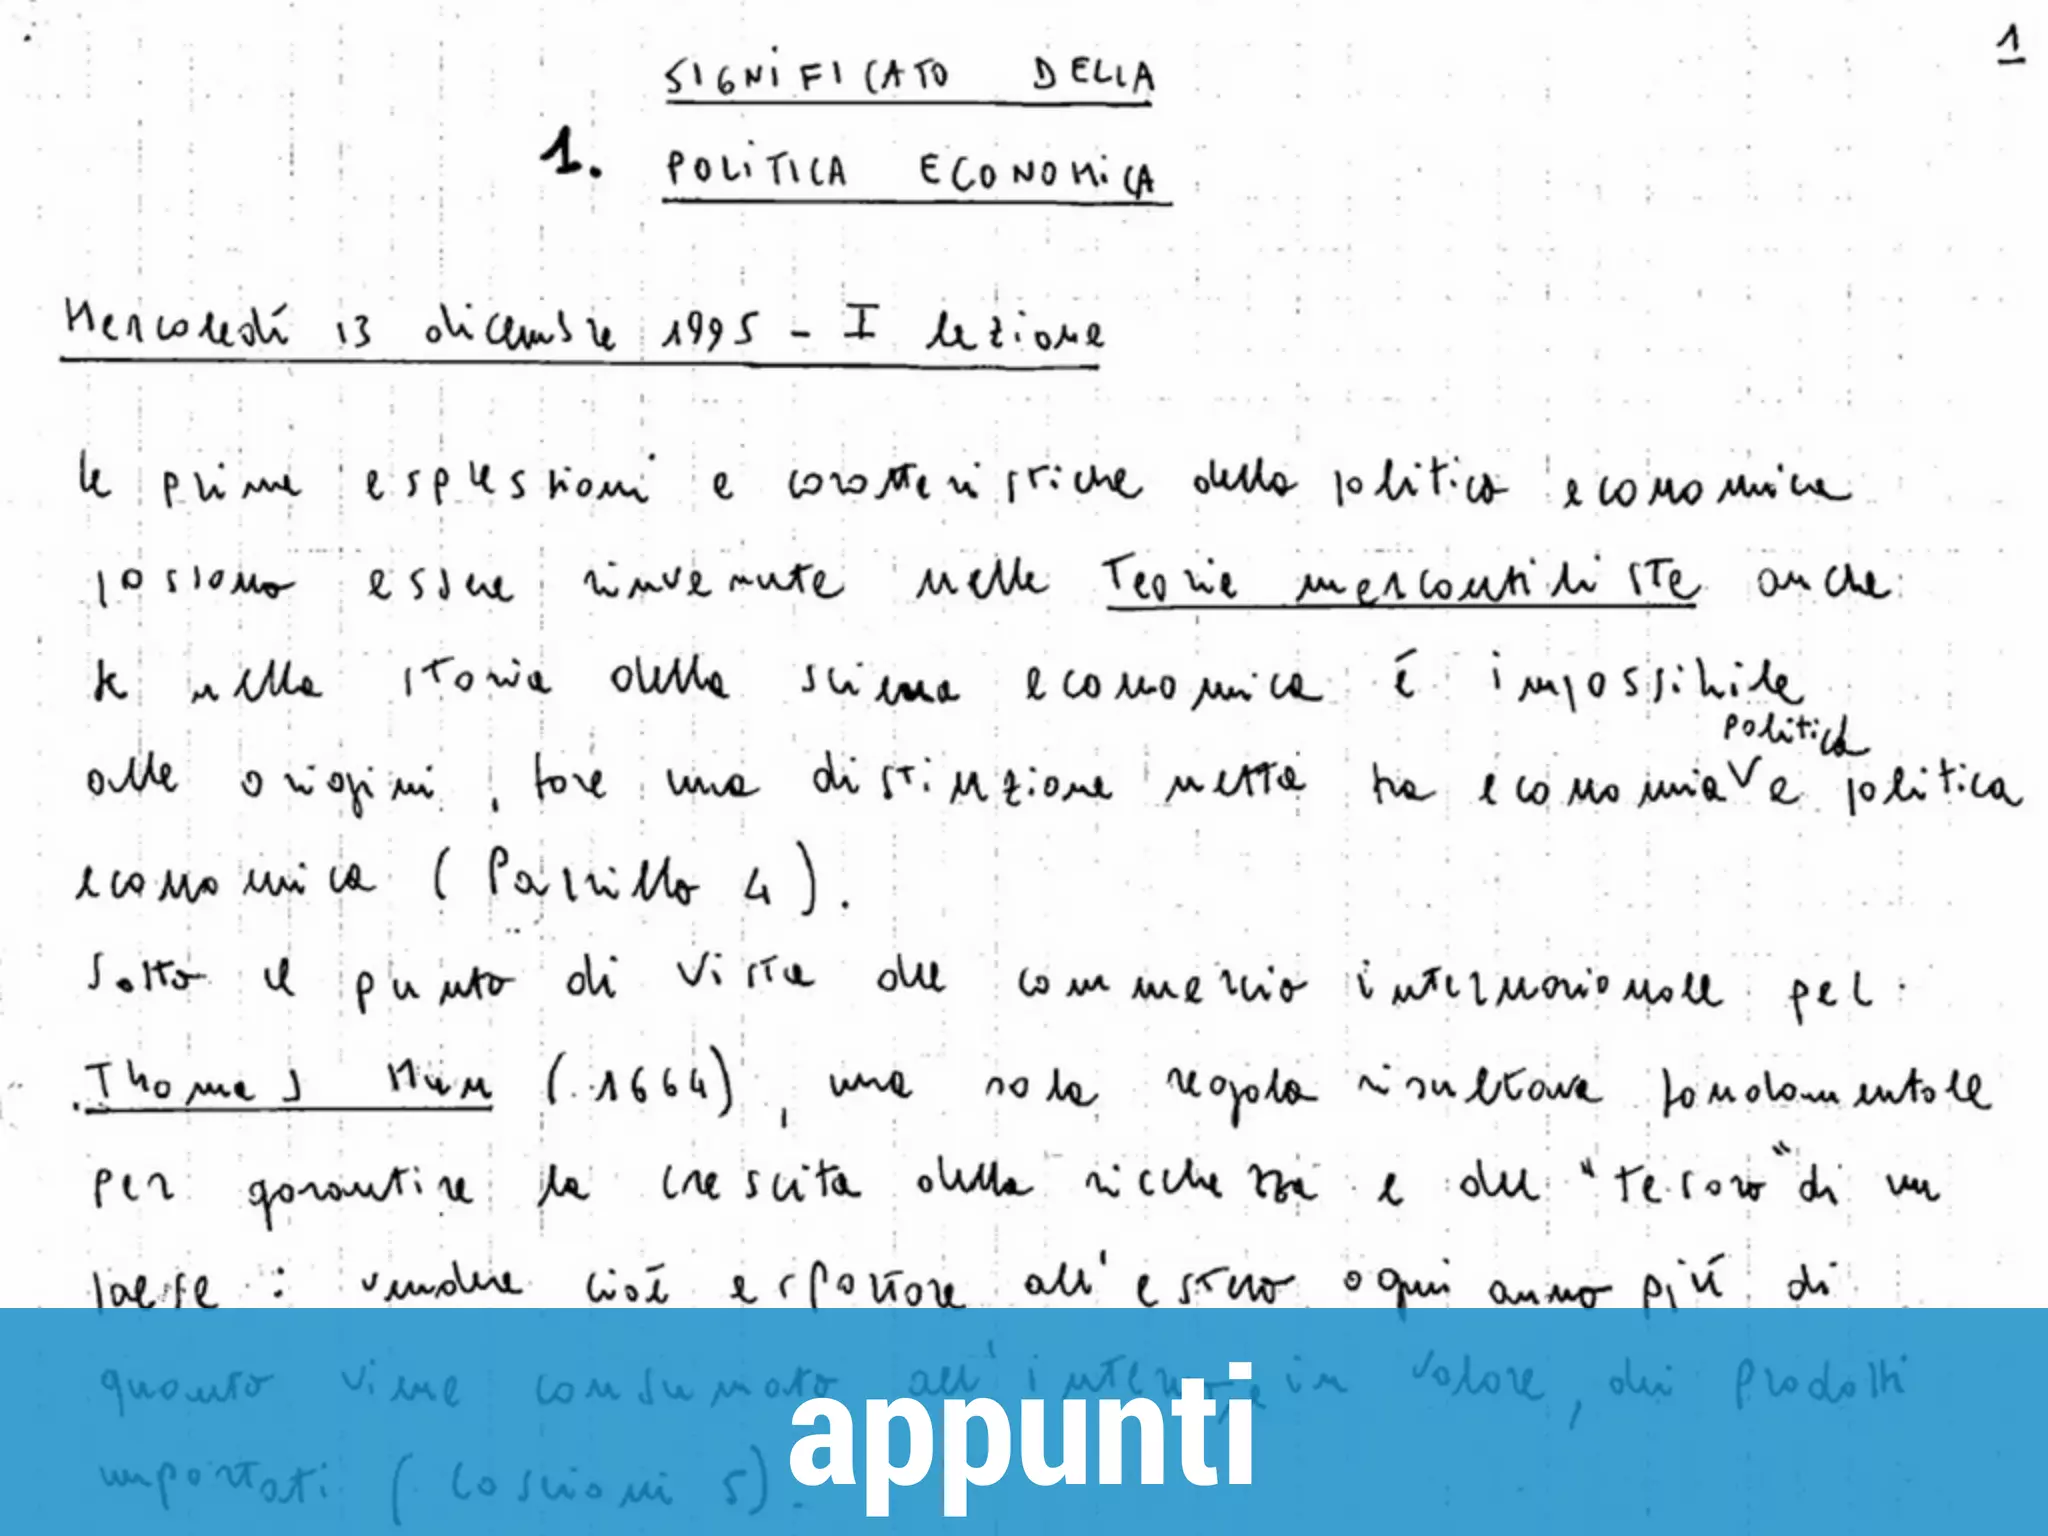 1
SIGNIFICATO DELLA
1. POLITICA ECONOMICA
Mercoledí 13 dicembre 1995 - I lezione
le prime espressioni e caratteristiche della politica economica
possono essere rinvenute nelle Teorie mercantiliste anche
se nella storia della scienza economica é impossibile
politica
alle origini, fare una distinzione netta tra economia V e politica
economica (Parrillo 4).
Sotto il punto di vista del commercio internazionale per
Thomas Mun (1664), una sola regola risultava fondamentale
per garantire la crescita della ricchezza e del "tesoro" di un
paese: vendere cioé esportare all'estero ogni anno piú di
quanto viene consumato all'interno, in valore, dei prodotti
importati (Coscioni 5).
appunti